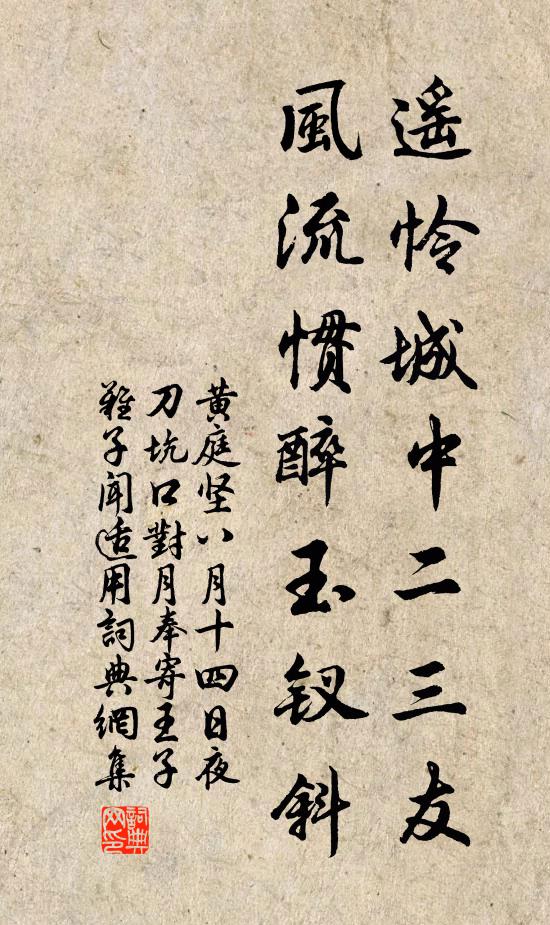 遥怜城中二三友
風流惯醉玉钗斜
黄庭坚八月十四日夜
刀坑口對月奉寄王子
難子闻适用詞典網集
詞典网印